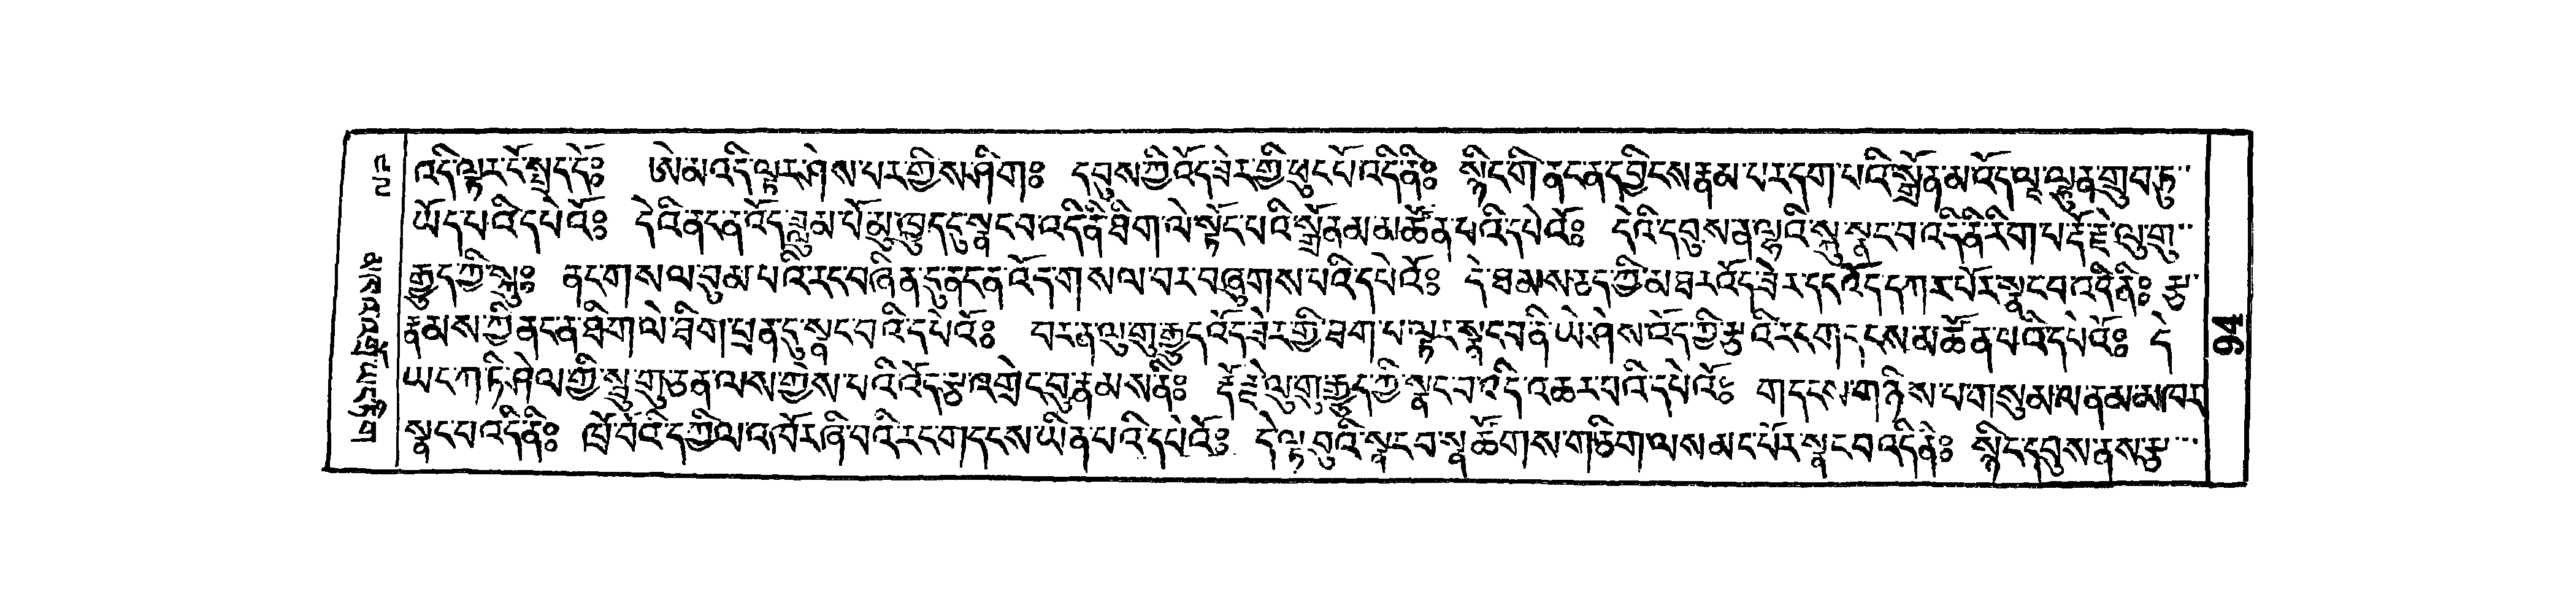 འདི་ལྟར་ངོ་སྤྲད་དོ༔ ཨེ་མ་འདི་ལྟར་ཤེས་པར་གྱིས་ཤིག༔ དབུས་ཀྱི་འོད་ཟེར་གྱི་ཕུང་པོ་འདི་ནི༔ སྙིང་གི་ནང་ན་དབྱིངས་རྣམ་པར་དག་པའི་སྒྲོན་མ་འོད་ལྔ་ལྷུན་གྲུབ་ཏུ
ཡོད་པའི་དཔེའོ༔ དེའི་ནང་ན་འོད་ཟླུམ་པོ་མུ་ཁྱུད་དུ་སྣང་བ་འདི་ནི་ཐིག་ལེ་སྟོང་པའི་སྒྲོན་མ་མཚོན་པའི་དཔེའོ༔ དེའི་དབུས་ན་ལྷའི་སྐུ་སྣང་བ་འདི་ནི་རིག་པ་རྡོ་རྗེ་ལུ་གུ
རྒྱུད་ཀྱི་སྐུ༔ ནང་གསལ་བུམ་པའི་རང་བཞིན་དུ་ནང་ན་འོད་གསལ་བར་བཞུགས་པའི་དཔེའོ༔ དེ་ཐམས་ཅད་ཀྱི་མཐར་འོད་ཟེར་དང་འོད་དཀར་པོར་སྣང་བ་འདི་ནི༔ རྩ
རྣམས་ཀྱི་ནང་ན་ཐིག་ལེ་ཐིག་ཕྲན་དུ་སྣང་བའི་དཔེའོ༔ བར་ན་ལུ་གུ་རྒྱུད་འོད་ཟེར་གྱི་ཐག་པ་ལྟར་སྣང་བ་ནི་ཡེ་ཤེས་འོད་ཀྱི་རྩའི་རང་གདངས་མཚོན་པའི་དཔེའོ༔ དེ
ཡང་ཀ་ཏི་ཤེལ་གྱི་སྦུ་གུ་ཅན་ལས་གྱེས་པའི་འོད་རྩ་འགྲེང་བུ་རྣམས་ནི༔ རྡོ་རྗེ་ལུ་གུ་རྒྱུད་ཀྱི་སྣང་བ་འདི་འཆར་བའི་དཔེའོ༔ གདངས་གཉིས་པ་གསུམ་ལ་ནམ་མཁར
སྣང་བ་འདི་ནི༔ ཁྲོ་བོའི་དཀྱིལ་འཁོར་ཞི་བའི་རང་གདངས་ཡིན་པའི་དཔེའོ༔ དེ་ལྟ་བུའི་སྣང་བ་སྣ་ཚོགས་གཅིག་ལས་མང་པོར་སྣང་བ་འདི་ནི༔ སྙིང་དབུས་ནས་རྩ